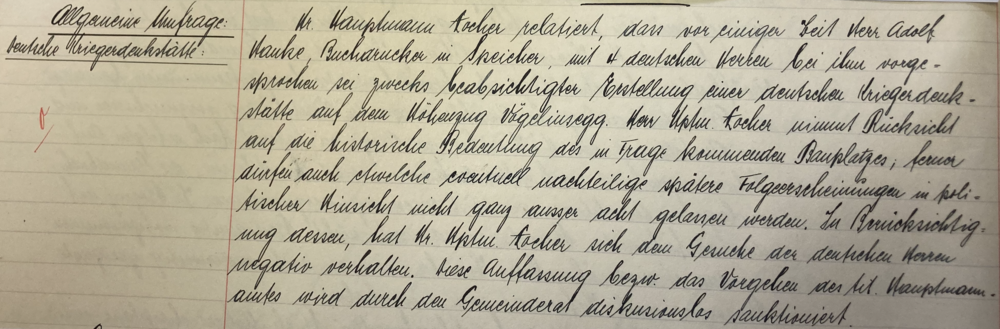 Allgemeine Umfrage:
Deutsche Kriegerdenkstätte:
Hr. Hauptmann Kocher relatiert, dass vor einiger Zeit Herr Adolf
Hanke, Buchdrucker in Speicher, mit 4 deutschen Herren bei ihm vorge-
sprochen sei zwecks beabsichtigter Erstellung einer deutschen Kriegerdenk-
stätte auf dem Höhenzug Vögelinsegg. Herr Hptm. Kocher nimmt Rücksicht
auf die historische Bedeutung des in Frage kommenden Bauplatzes, ferner
dürfen auch etwelche eventuell nachteilige spätere Folgeerscheinungen in poli-
tischer Hinsicht nicht ganz ausser acht gelassen werden. In Berücksichtig-
ung dessen, hat Hr. Hptm. Kocher sich dem Gesuche der deutschen Herren
negativ verhalten. Diese Auffassung bezw. das Vorgehen des tit. Hauptmann-
amtes wird durch den Gemeinderat diskusionslos sanktioniert